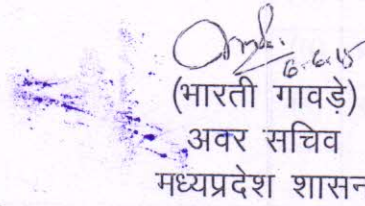 (भारती गावड़े)
अवर सचिव
मध्यप्रदेश शासन